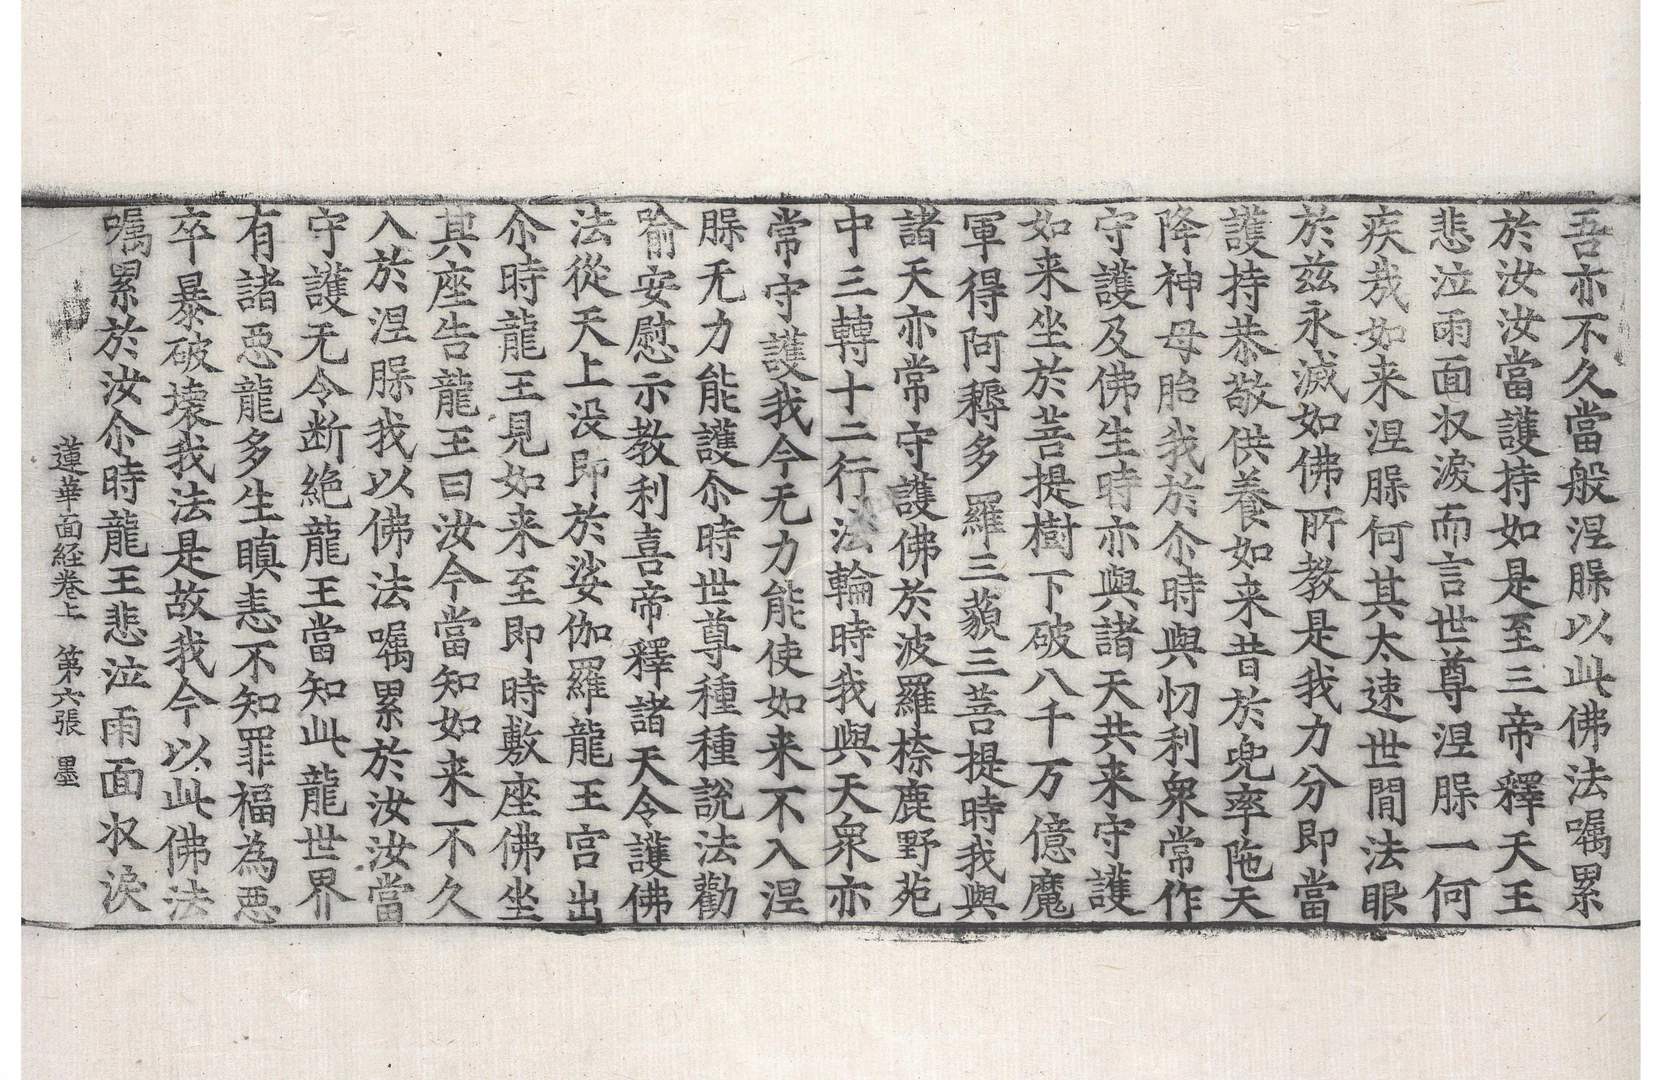 吾亦不久當般涅槃以此佛法囑累
於汝汝當護持如是至三帝釋天王
悲泣雨面収淚而言世尊涅槃一何
疾㢤如来涅槃何其太速世閒法眼
於兹永滅如佛所教是我力分即當
護持恭敬供養如来昔於兜率陁天
降神母胎我於尒時與忉利衆常作
守護及佛生時亦與諸天共来守護
如来坐於菩提樹下破八千万億魔
軍得阿耨多羅三藐三菩提時我與
諸天亦常守護佛於波羅㮈鹿野苑
中三轉十二行法輪時我與天衆亦
常守護我今无力能使如来不入涅
槃无力能護尒時世尊種種說法勸
喻安慰示教利喜帝釋諸天令護佛
法從天上没即於娑伽羅龍王宫出
尒時龍王見如来至即時敷座佛坐
其座告龍王曰汝今當知如来不久
入於涅槃我以佛法囑累於汝汝當
守護无令断絶龍王當知此龍世界
有諸惡龍多生瞋恚不知罪福為惡
卒暴破壊我法是故我今以此佛法
囑累於汝尒時龍王悲泣雨面収淚
蓮華面経卷上 第六張 墨